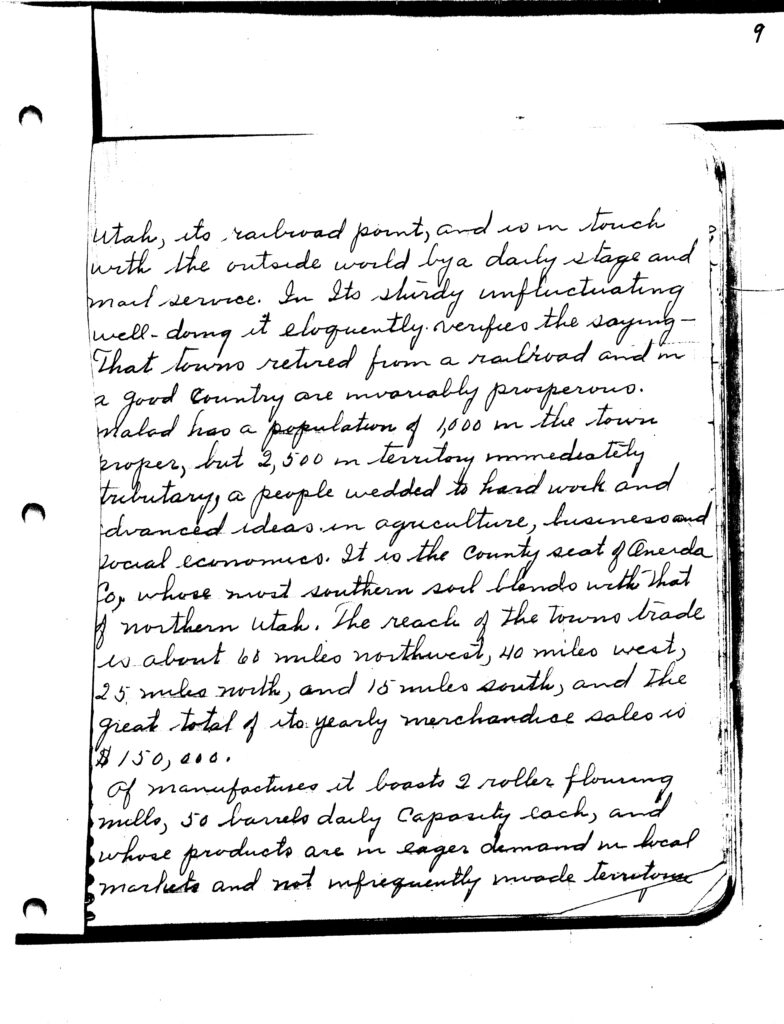 9
Utah, its railroad point, and is in touch
with the outside world by a daily stage and
mail service. In Its sturdy unfluctuating
well-doing it eloquently verifies the saying—
That towns retired from a railroad and in
a good Country are invariably prosperous.
Malad has a population of 1,000 in the town
proper, but 2,500 in territory immediately
tributary, a people wedded to hard work and
advanced ideas in agriculture, business and
social economics. It is the County seat of Oneida
Co, whose most southern soil blends with that
of northern Utah. The reach of the towns trade
is about 60 miles northwest, 40 miles west,
25 miles north, and 15 miles south, and The
great total of its yearly merchandice sales is
$150,000.
Of manufactures it boasts 2 roller flouring
mills, 50 barrels daily Capasity each, and
whose products are in eager demand in local
markets and not infrequently invade